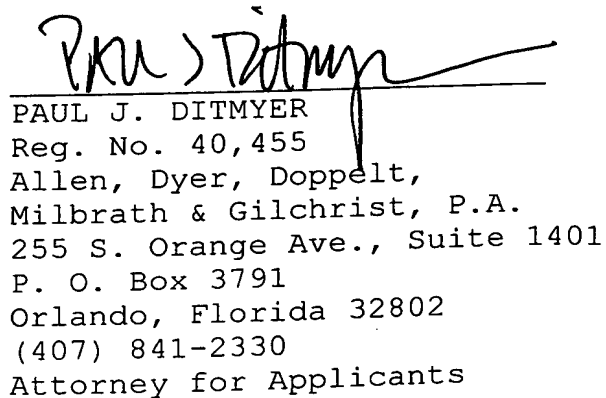 Paul J Ditmyer
PAUL J. DITMYER
Reg. No. 40,455
Allen, Dyer, Doppelt,
Milbrath & Gilchrist, P.A.
255 S. Orange Ave., Suite 1401
P. O. Box 3791
Orlando, Florida 32802
(407) 841-2330
Attorney for Applicants